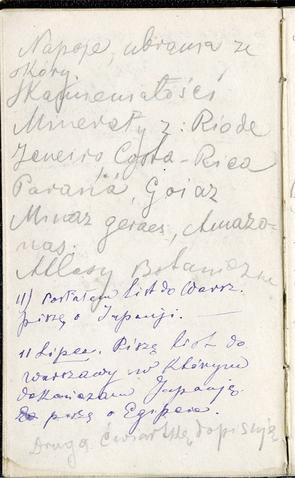 Napoje, ubrania ze
skóry
Skamieniałości
Minerały z: Rio de
Jeneiro Costa-Rica
Parańa, Goiaz
Minaz geraes, Amazo-
nas.
Atlasy Botaniczne
11) Posłałam list do Warsz.
piszę o Japonji.
11 Lipca. Piszę list do
Warszawy w którym
dokańczam Japonję
piszę o Egipcie.
Drugą ćwiartkę dopisuję